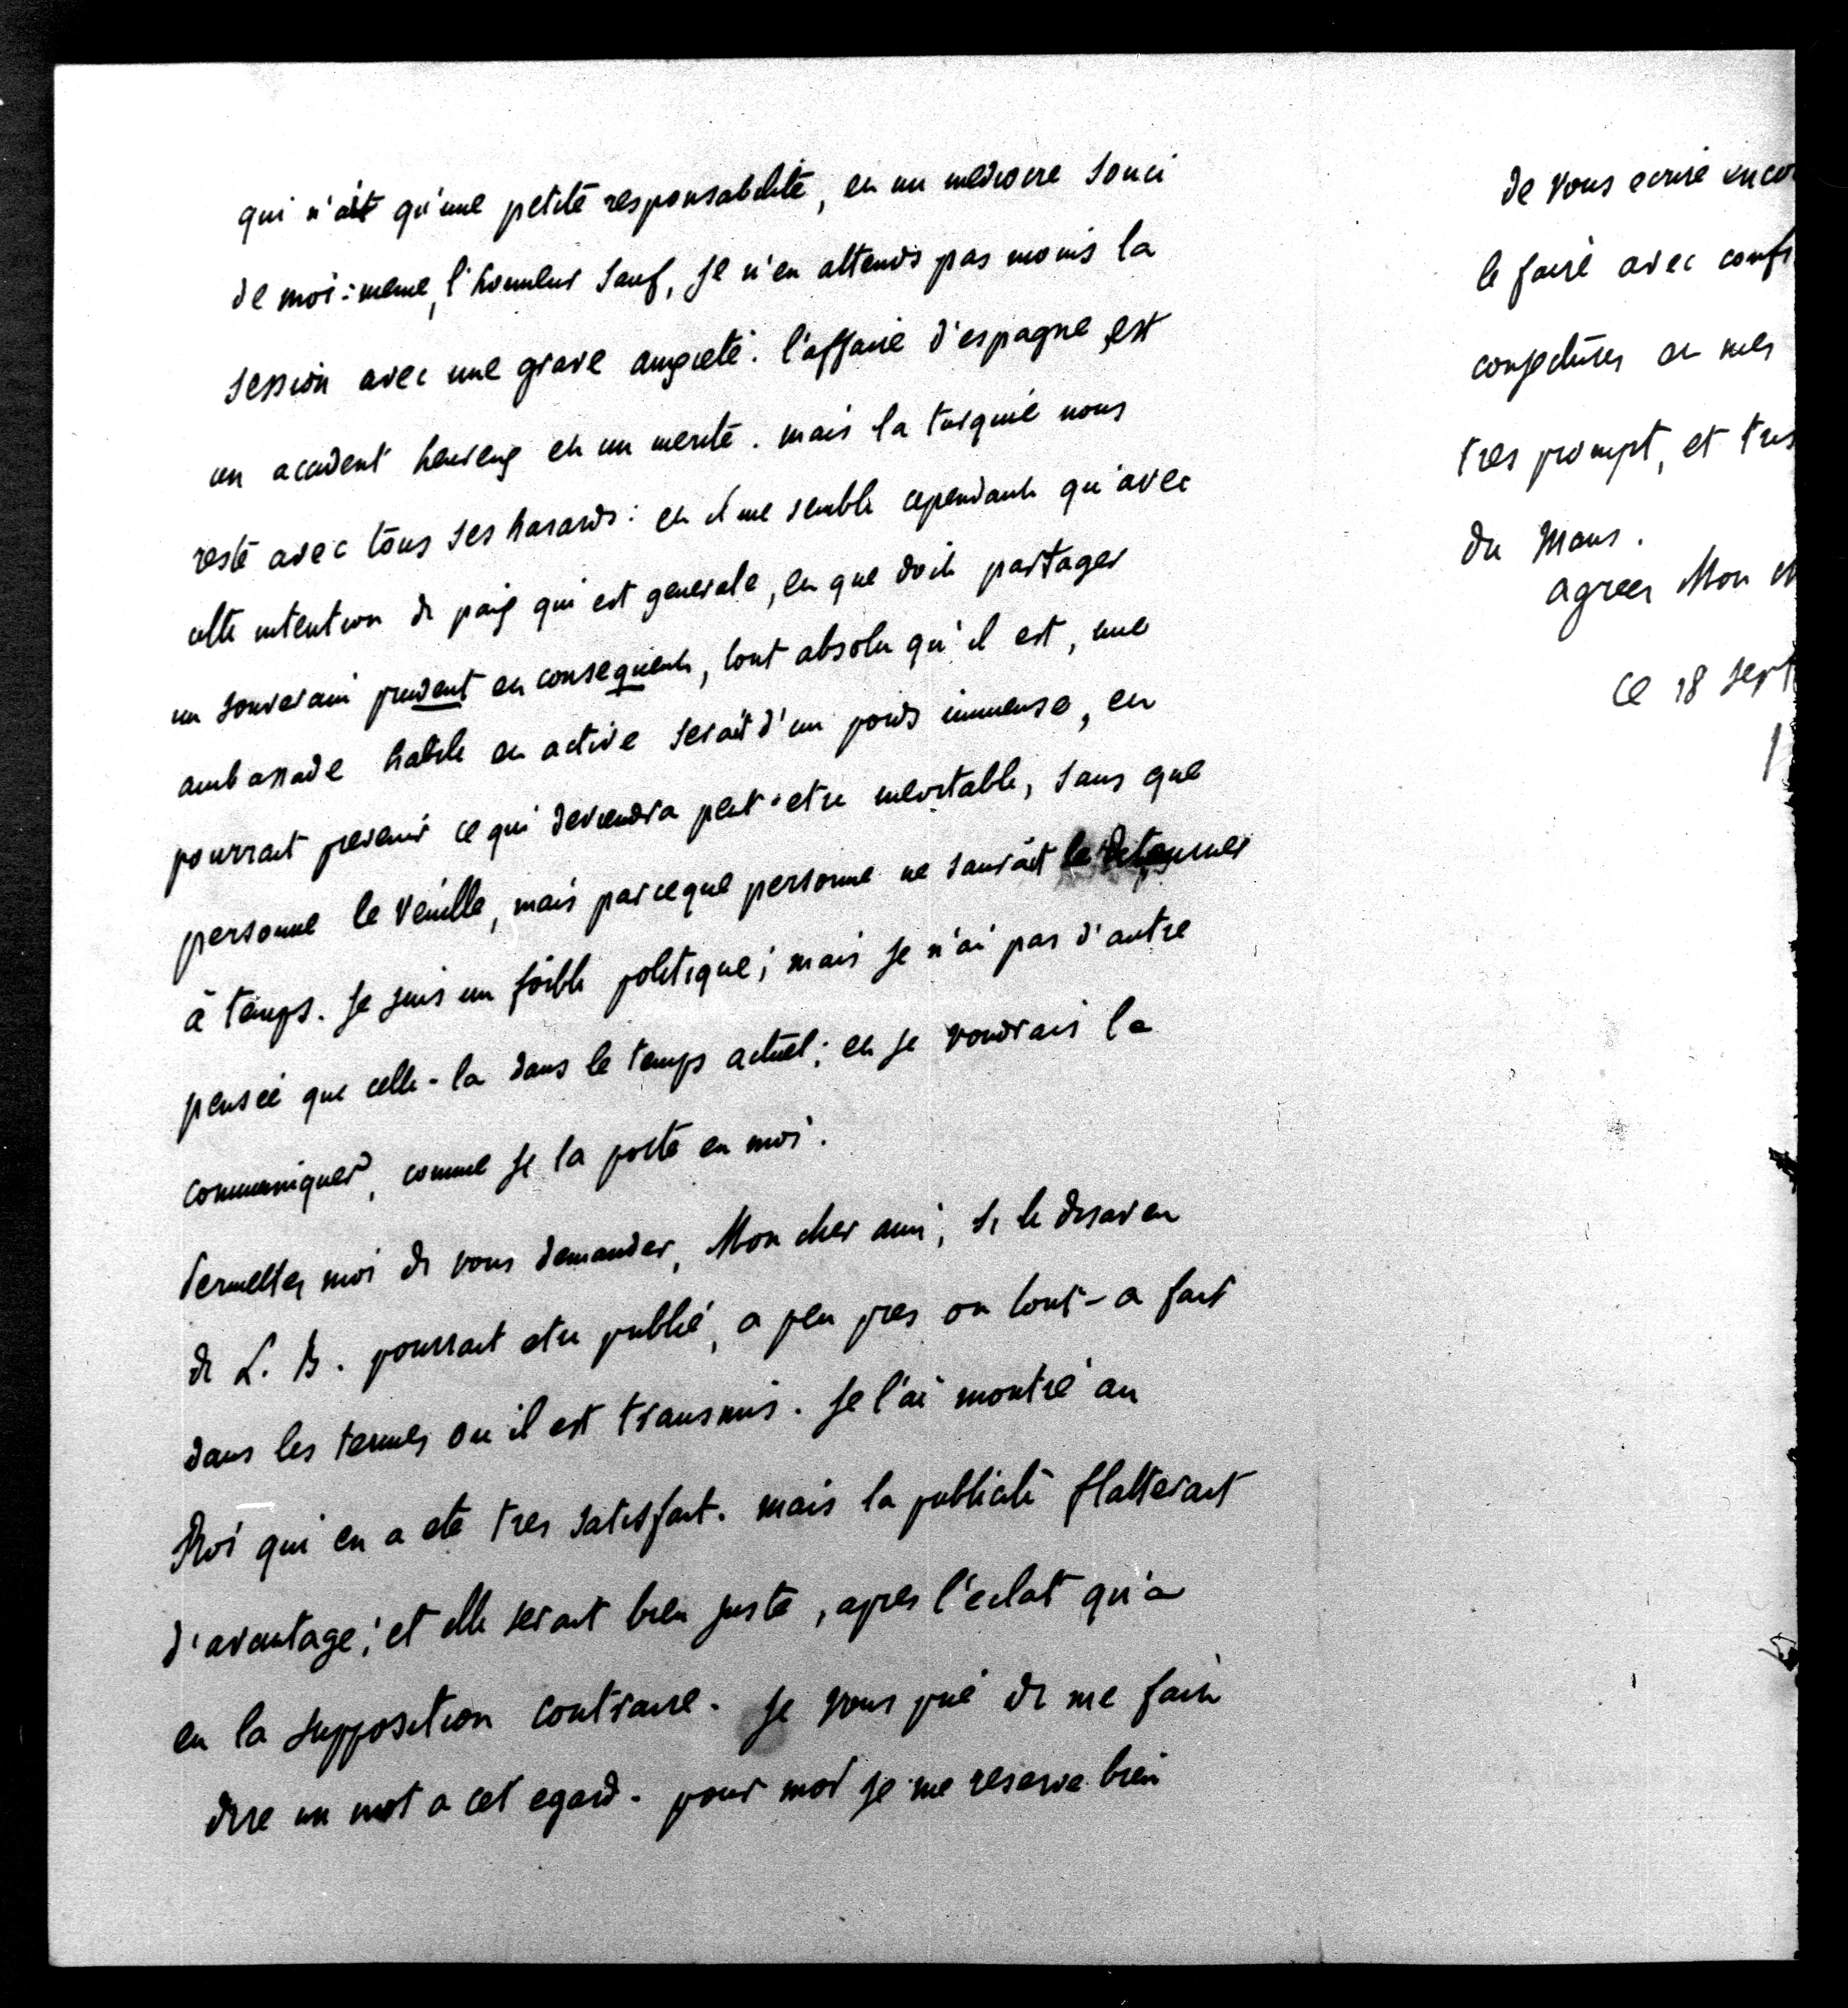 qui n'ait qu'une petite responsabilité, et un mediocre souci
de moi-meme, l'honneur sauf, je n'en attends pas moins la
session avec une grave anxieté. l'affaire d'espagne est
un accident heureux et un merite. mais la turquie nous
reste avec tous ses hasards: et il me semble cependant qu'avec
cette intention de paix qui est generale, et que doit partager
un souverain prudent et consequent, tout absolu qu'il est, une
ambassade habile et active serait d'un poids immense, et
pourrait prevenir ce qui deviendra peut-etre inevitable, sans que
personne le veuille, mais parceque personne ne saurait le detourner
à temps. Je suis un foible politique; mais je n'ai pas d'autre
pensée que celle-la dans le temps actuel; et je voudrais la
communiquer, comme je la porte en moi.
Permettez moi de vous demander, Mon cher ami, si le desaveu
de L. B. pourrait etre publié, a peu pres ou tout-a fait
dans les termes ou il est transmis. Je l'ai montré au
Roi qui en a eté tres satisfait. mais la publicité flatterait
d'avantage; et elle serait bien juste, apres l'eclat qu'a
eu la supposition contraire. Je vous prie de me faire
dire un mot a cet egard. pour moi je me reserve bien
de vous ecrire enco
le faire avec confi
conjectures et mes
tres prompt, et tres
du Mans.
agreez Mon ch
Ce 18 sept